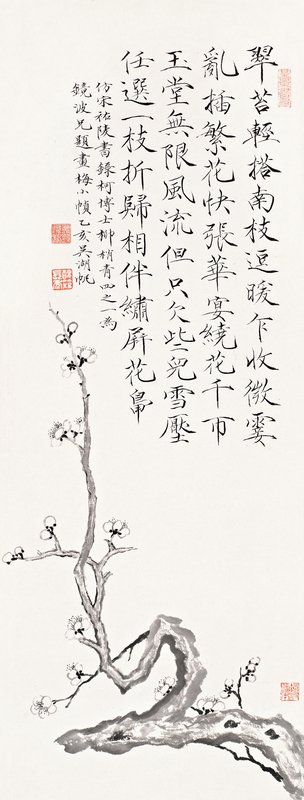 翠苔輕搭南枝逗暖乍收微霎
亂插繁花快張華宴繞花千帀
玉堂無限風流但只欠些兒雪壓
任選一枝折歸相伴繡屏花鳧
仿宋祐陵書錄柯博士柳梢青四之一為
鏡波兄題畫梅小幀乙亥吳湖帆